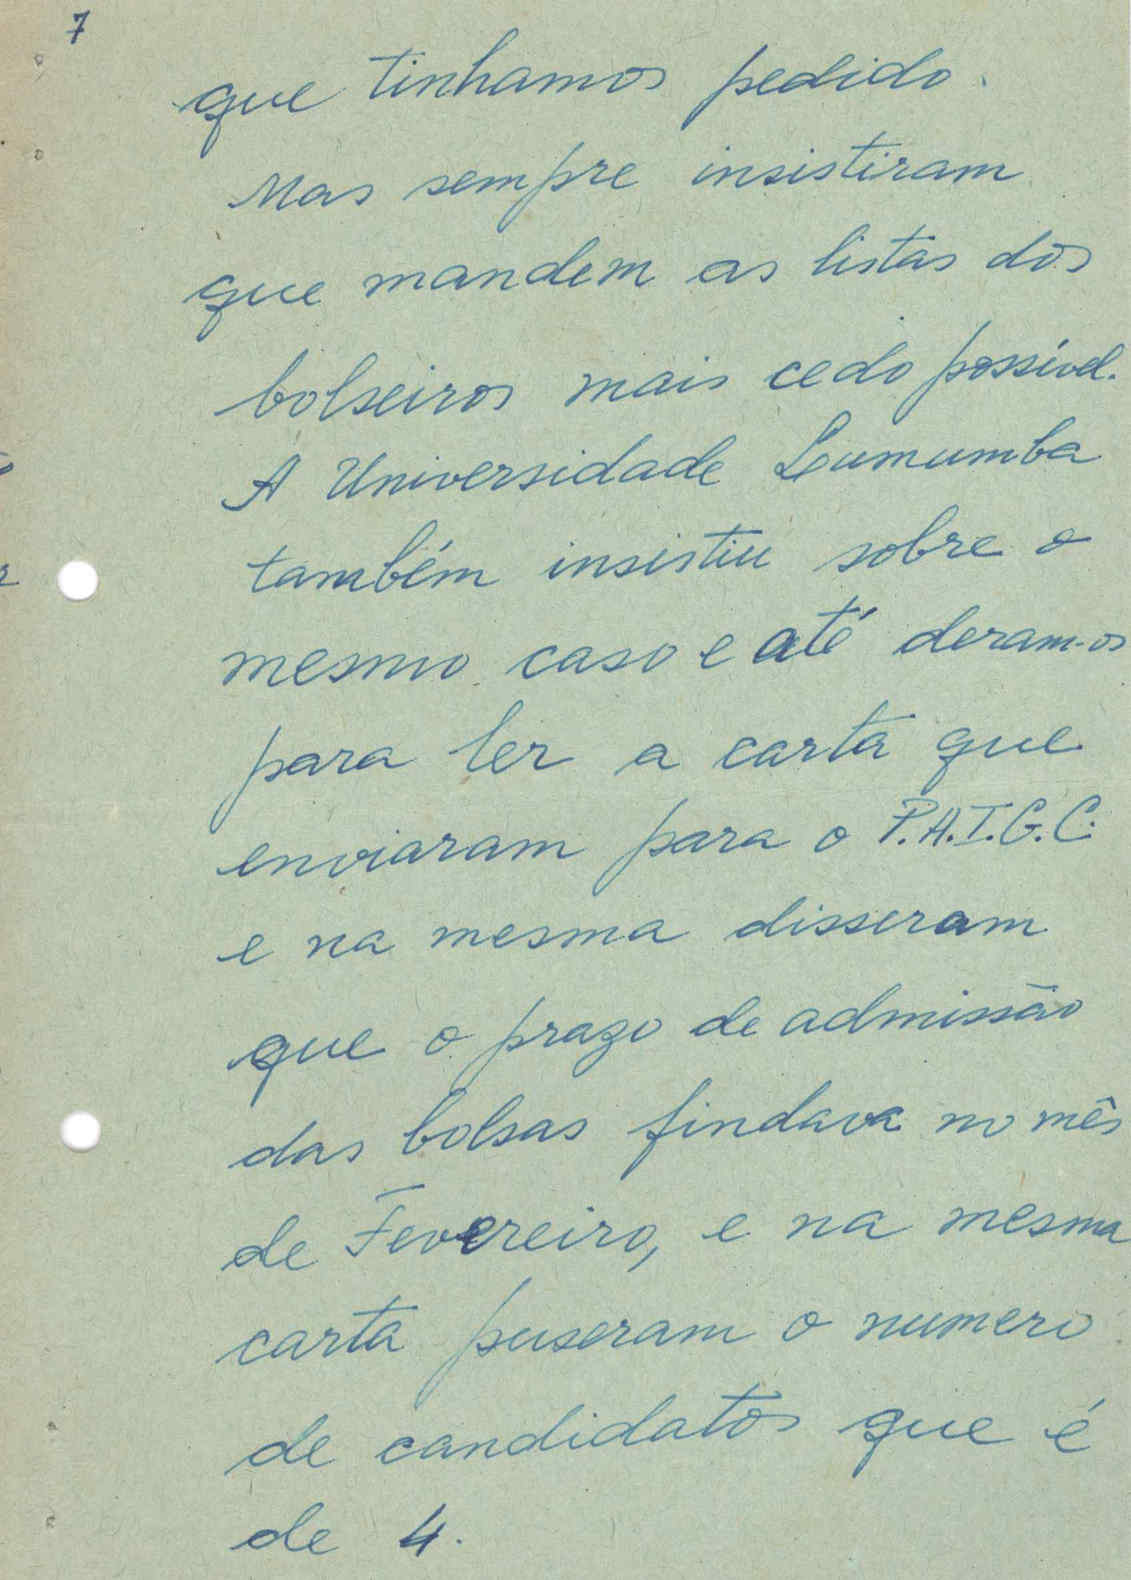 7
que tinhamos pedido.
Mas sempre insistiram
que mandem as listas dos
bolseiros mais cedo possível.
A Universidade Lumumba
também insistiu sobre o
mesmo caso e até deram-os
para ler a carta que
enviaram para o P.A.I.G.C.
e na mesma disseram
que o prazo de admissão
das bolsas findava no mês
de Fevereiro, e na mesma
carta puseram o numero
de candidatos que é
de 4.